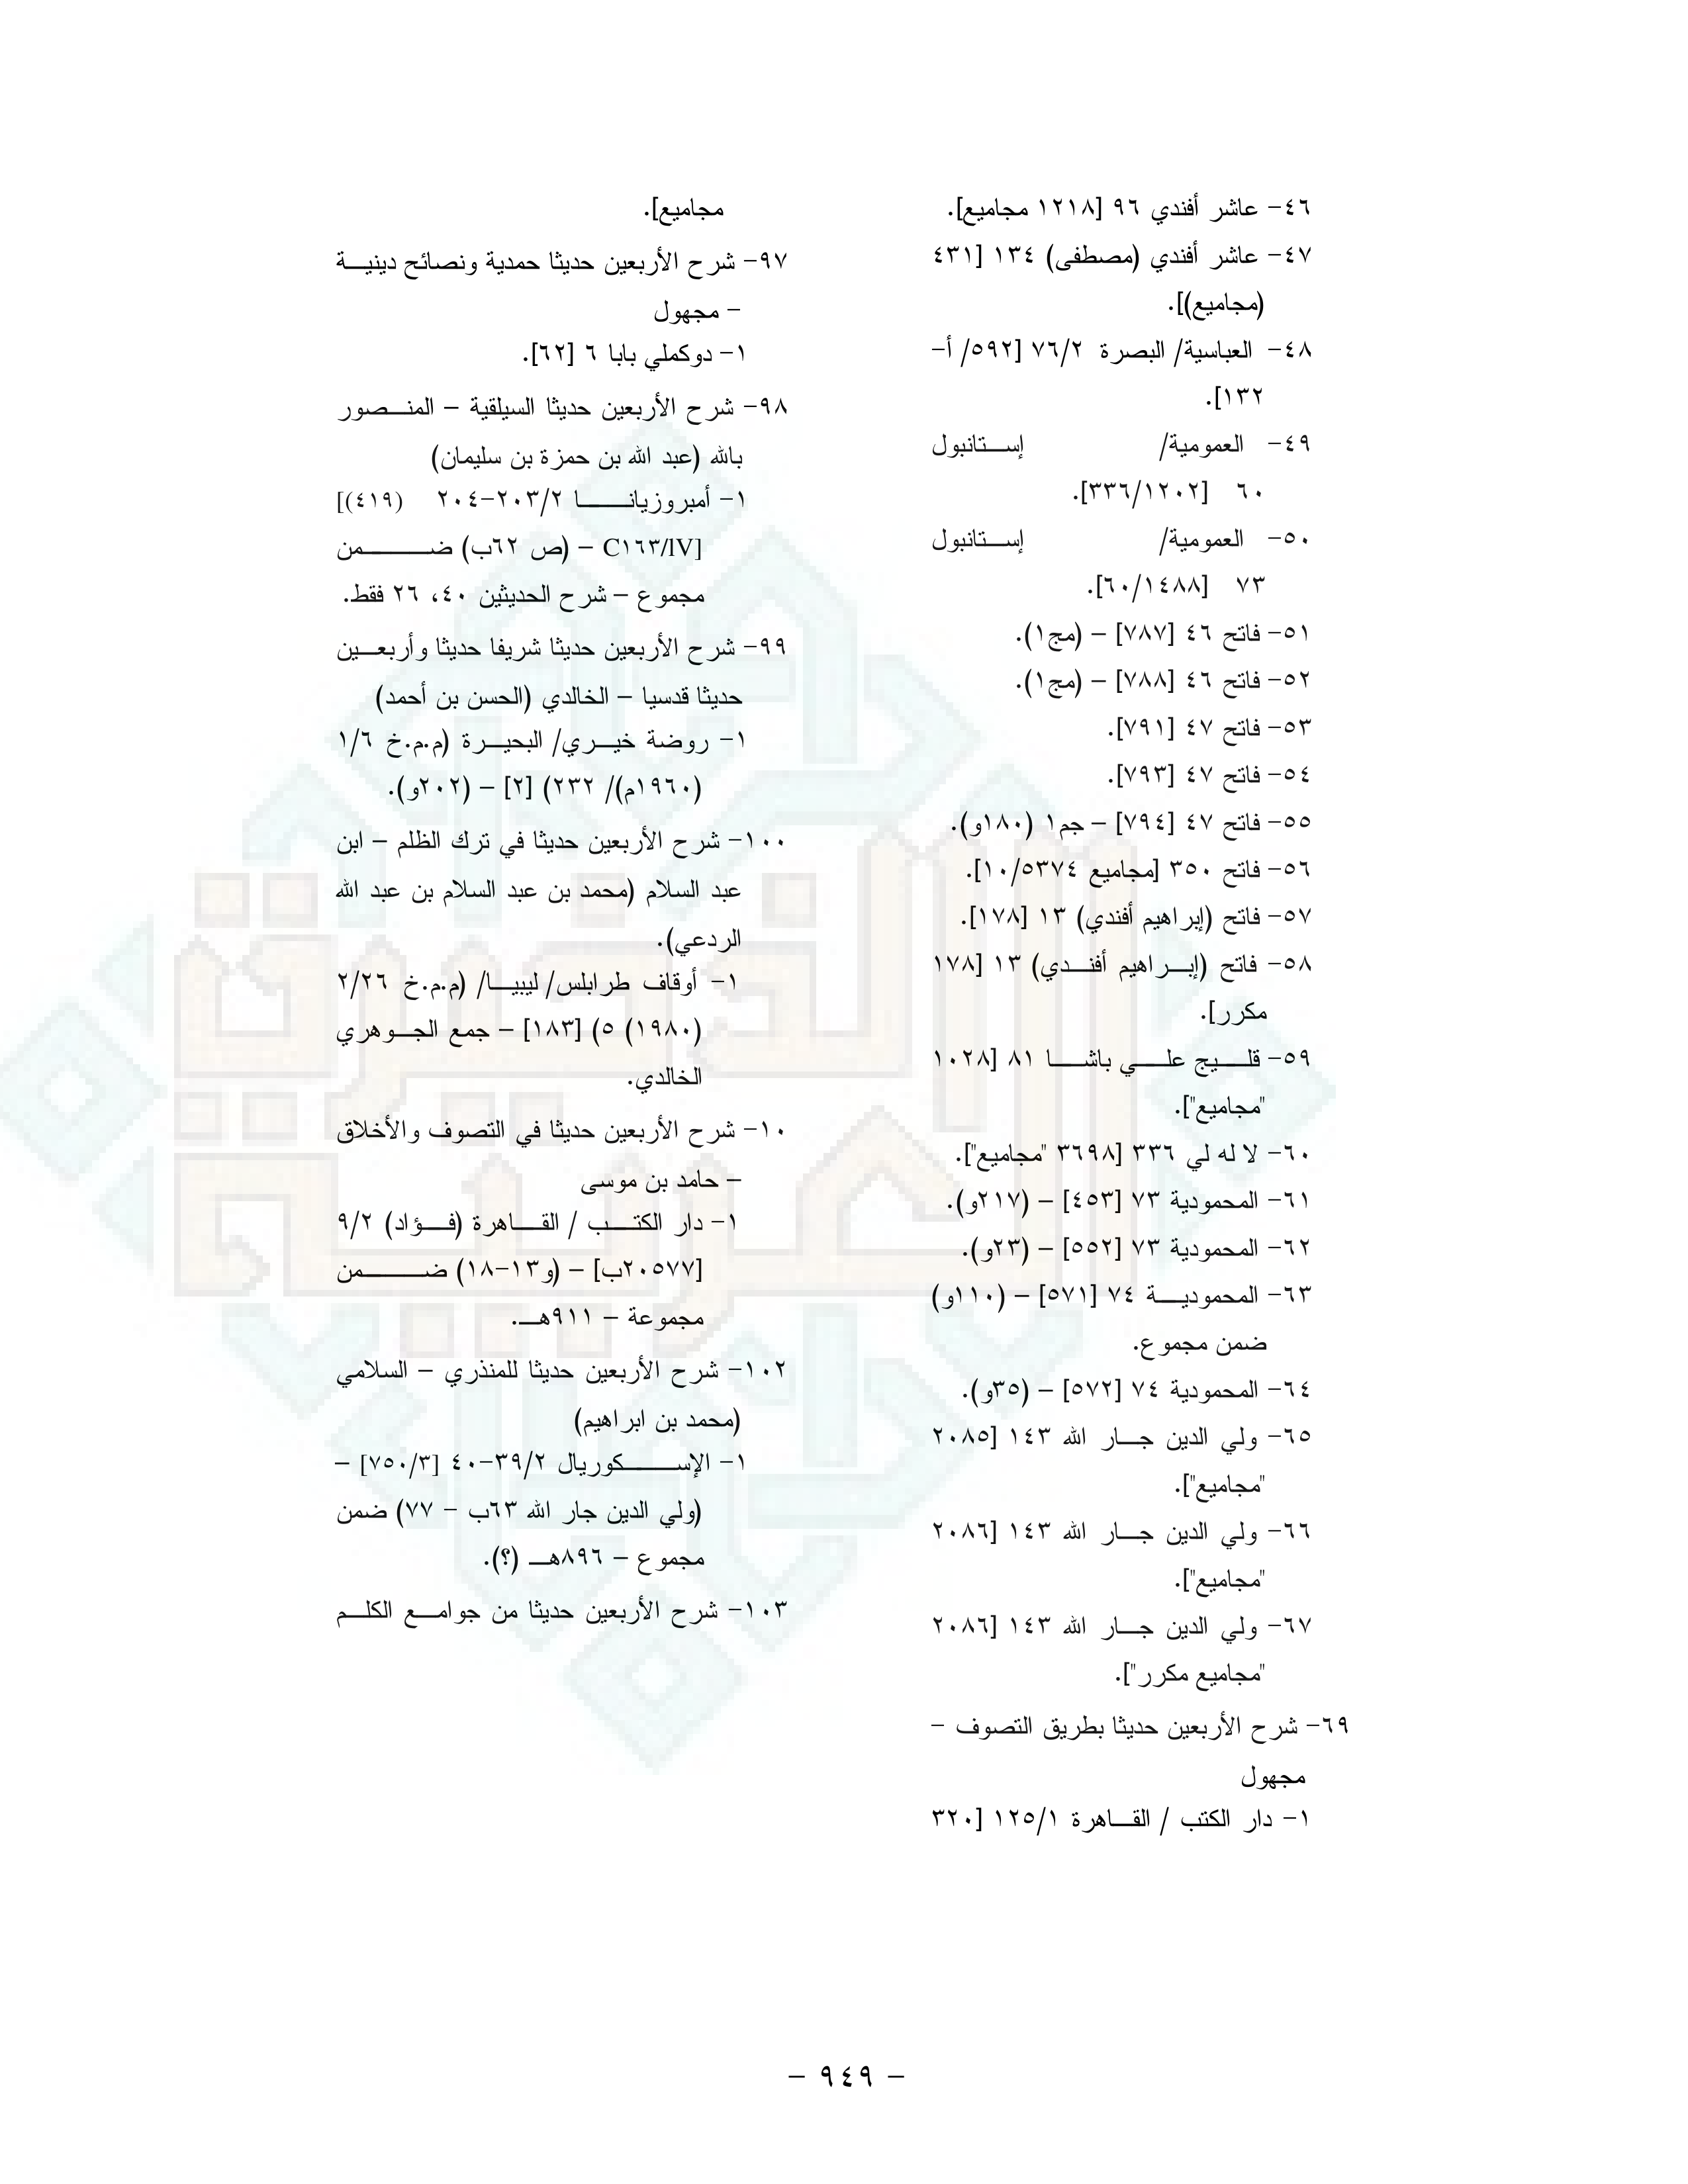 ٤٦- عاشر أفندي ٩٦ [١٢١٨ مجاميع].
٤٧- عاشر أفندي (مصطفى) ١٣٤ [٤٣١
(مجاميع)].
٤٨- العباسية/ البصرة ٧٦/٢ [٥٩٢/ أ-
١٣٢].
٤٩- العمومية/ إستانبول
٦٠ [٣٣٦/١٢٠٢].
٥٠- العمومية/ إستانبول
٧٣ [٦٠/١٤٨٨].
٥١- فاتح ٤٦ [٧٨٧] – (مج١).
٥٢- فاتح ٤٦ [٧٨٨] – (مج١).
٥٣- فاتح ٤٧ [٧٩١].
٥٤- فاتح ٤٧ [٧٩٣].
٥٥- فاتح ٤٧ [٧٩٤] – جم١ (١٨٠و).
٥٦- فاتح ٣٥٠ [مجاميع ١٠/٥٣٧٤].
٥٧- فاتح (إبراهيم أفندي) ١٣ [١٧٨].
٥٨- فاتح (إبراهيم أفندي) ١٣ [١٧٨
مكرر].
٥٩- قليج علي باشا ٨١ [١٠٢٨
"مجاميع"].
٦٠- لا له لي ٣٣٦ [٣٦٩٨ "مجاميع"].
٦١- المحمودية ٧٣ [٤٥٣] – (٢١٧و).
٦٢- المحمودية ٧٣ [٥٥٢] – (٢٣و).
٦٣- المحمودية ٧٤ [٥٧١] – (١١٠و)
ضمن مجموع.
٦٤- المحمودية ٧٤ [٥٧٢] – (٣٥و).
٦٥- ولي الدين جار الله ١٤٣ [٢٠٨٥
"مجاميع"].
٦٦- ولي الدين جار الله ١٤٣ [٢٠٨٦
"مجاميع"].
٦٧- ولي الدين جار الله ١٤٣ [٢٠٨٦
"مجاميع مكرر"].
٦٩- شرح الأربعين حديثا بطريق التصوف -
مجهول
١- دار الكتب / القاهرة ١٢٥/١ [٣٢٠
مجاميع].
٩٧- شرح الأربعين حديثا حمدية ونصائح دينية
– مجهول
١- دوكملي بابا ٦ [٦٢].
٩٨- شرح الأربعين حديثا السيلقية – المنصور
بالله (عبد الله بن حمزة بن سليمان)
١- أمبروزيانا ٢٠٣/٢-٢٠٤ (٤١٩)]
C١٦٣/lV] – (ص ٦٢ب) ضمن
مجموع – شرح الحديثين ٤٠، ٢٦ فقط.
٩٩- شرح الأربعين حديثا شريفا حديثا وأربعين
حديثا قدسيا – الخالدي (الحسن بن أحمد)
١- روضة خيري/ البحيرة (م.م.خ ١/٦
(١٩٦٠م)/ ٢٣٢) [٢] – (٢٠٢و).
١٠٠- شرح الأربعين حديثا في ترك الظلم – ابن
عبد السلام (محمد بن عبد السلام بن عبد الله
الردعي).
١- أوقاف طرابلس/ ليبيا/ (م.م.خ ٢/٢٦
(١٩٨٠) ٥) [١٨٣] – جمع الجوهري
الخالدي.
١٠- شرح الأربعين حديثا في التصوف والأخلاق
– حامد بن موسى
١- دار الكتب / القاهرة (فؤاد) ٩/٢
[٢٠٥٧٧ب] – (و١٣-١٨) ضمن
مجموعة – ٩١١هـ.
١٠٢- شرح الأربعين حديثا للمنذري – السلامي
(محمد بن ابراهيم)
١- الإسكوريال ٣٩/٢-٤٠ [٧٥٠/٣] –
(ولي الدين جار الله ٦٣ب – ٧٧) ضمن
مجموع – ٨٩٦هـ (؟).
١٠٣- شرح الأربعين حديثا من جوامع الكلم
- ٩٤٩ -